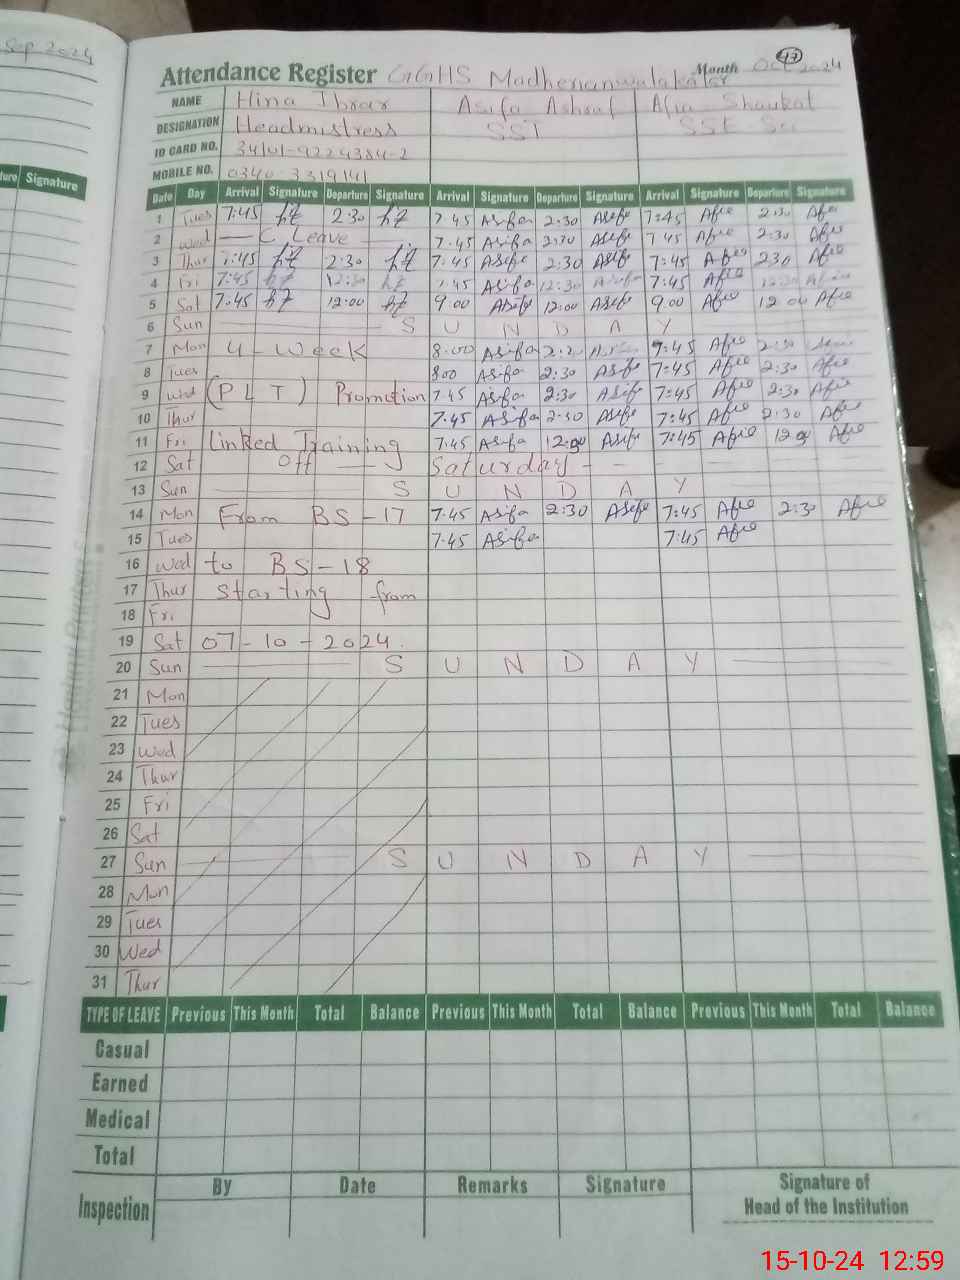 Sep 2024
ture Signature
47
Attendance Register GGHS Month Oct 2024
NAME Hina Ibrar Asifa Ashraf Afia Shaukat
DESIGNATION Headmistress SST SSE Sci
ID CARD NO. 34101-9224384-2
MOBILE NO. 0340-3319141
Date Day Arrival Signature Departure Signature Arrival Signature Departure Signature Arrival Signature Departure Signature
1 Tues 7:45 2:30 7:45 Asifa 2:30 Asifa 7:45 Afia 2:30 Afia
2 Wed C Leave 7:45 Asifa 2:30 Asifa 7:45 Afia 2:30 Afia
3 Thur 7:45 2:30 7:45 Asifa 2:30 Asifa 7:45 Afia 2:30 Afia
4 Fri 7:45 12:30 7:45 Asifa 12:30 Asifa 7:45 Afia 12:30 Afia
5 Sat 7:45 12:00 9:00 Asifa 12:00 Asifa 9:00 Afia 12:00 Afia
6 Sun S U N D A Y
7 Mon 4-Week 8:00 Asifa 2:30 Asifa 7:45 Afia 2:30
8 Tues 800 Asifa 2:30 Asifa 7:45 Afia 2:30 Afia
9 Wed (PLT) Promotion 7:45 Asifa 2:30 Asifa 7:45 Afia 2:30 Afia
10 Thur 7:45 Asifa 2:30 Asifa 7:45 Afia 2:30 Afia
11 Fri Linked Training 7:45 Asifa 12:30 Asifa 7:45 Afia 12:30 Afia
12 Sat Off Saturday - - -
13 Sun S U N D A Y
14 Mon From BS-17 7:45 Asifa 2:30 Asifa 7:45 Afia 2:30 Afia
15 Tues 7:45 Asifa 7:45 Afia
16 Wed to BS-18
17 Thur Starting from
18 Fri
19 Sat 07-10-2024.
20 Sun S U N D A Y
21 Mon
22 Tues
23 Wed
24 Thur
25 Fri
26 Sat
27 Sun S U N D A Y
28 Mon
29 Tues
30 Wed
31 Thur
TYPE OF LEAVE Previous This Month Total Balance Previous This Month Total Balance Previous This Month Total Balance
Casual
Earned
Medical
Total
Inspection By Date Remarks Signature Signature of
Head of the Institution
15-10-24 12:59